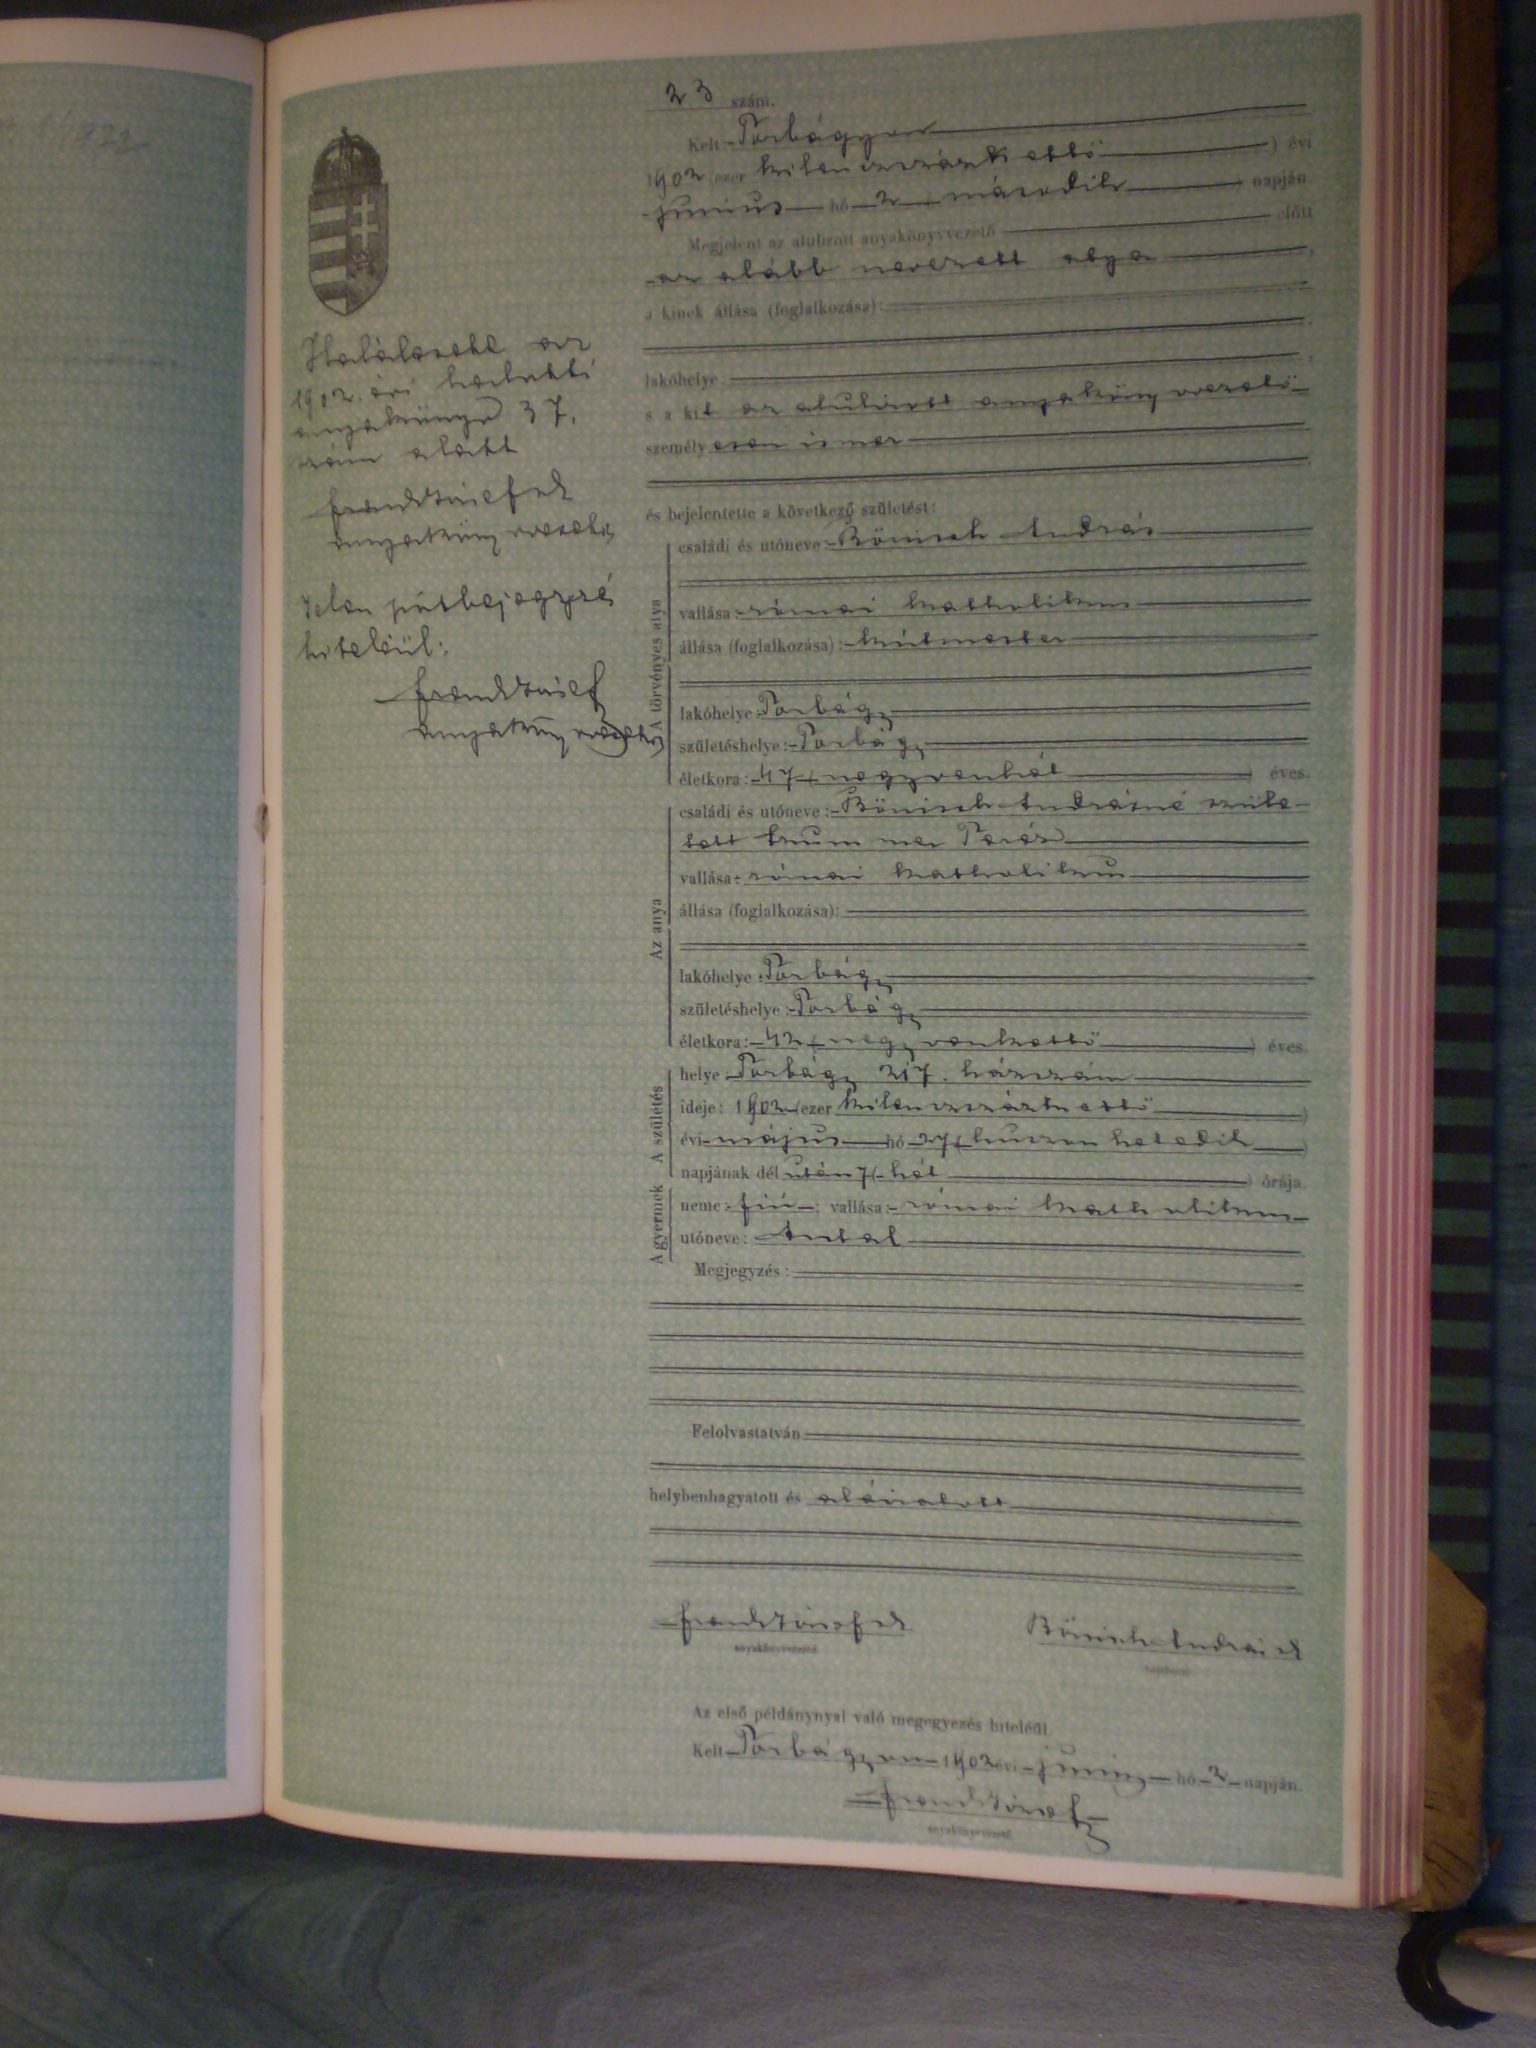 23 szám.
Kelt Torbágyon
1902 (ezer kilenczszázkettő) évi
junius hó 2 (második) napján.
Megjelent az alulirott anyakönyvvezető előtt
az alább nevezett atya,
a kinek állása (foglalkozása):
lakóhelye:
s a kit az alulirott anyakönyvvezető
személyesen ismer
és bejelentette a következő születést:
A törvényes atya
családi és utóneve: Bönisch András
vallása: római katholikus
állása (foglalkozása): kútmester
lakóhelye: Torbágy
születéshelye: Torbágy
életkora: 47 (negyvenhét) éves.
Az anya
családi és utóneve: Bönisch Andrásné szüle-
tett Krummer Teréz
vallása: római katholikus
állása (foglalkozása):
lakóhelye: Torbágy
születéshelye: Torbágy
életkora: 42 (negyvenkettő) éves.
A születés
helye: Torbágy 217. házszám
ideje: 1902 (ezer kilenczszázkettő)
évi május hó 27 (huszonhetedik)
napjának dél után 7 (hét) órája.
A gyermek
neme: fiú; vallása: római katholikus
utóneve: Antal
Megjegyzés:
Felolvastatván
helybenhagyatott és aláiratott
Frank József
Bönisch András
anyakönyvvezető
Az első példánynyal való megegyezés hiteléül.
Kelt Torbágyon 1902 évi junius hó 2 napján.
Frank József
anyakönyvvezető
Halálesete az
1902. évi halotti
anyakönyv 37.
szám alatt
Frank József
anyakönyvvezető
Jelen utóbejegyzés
hiteléül:
Frank József
anyakönyvvezető